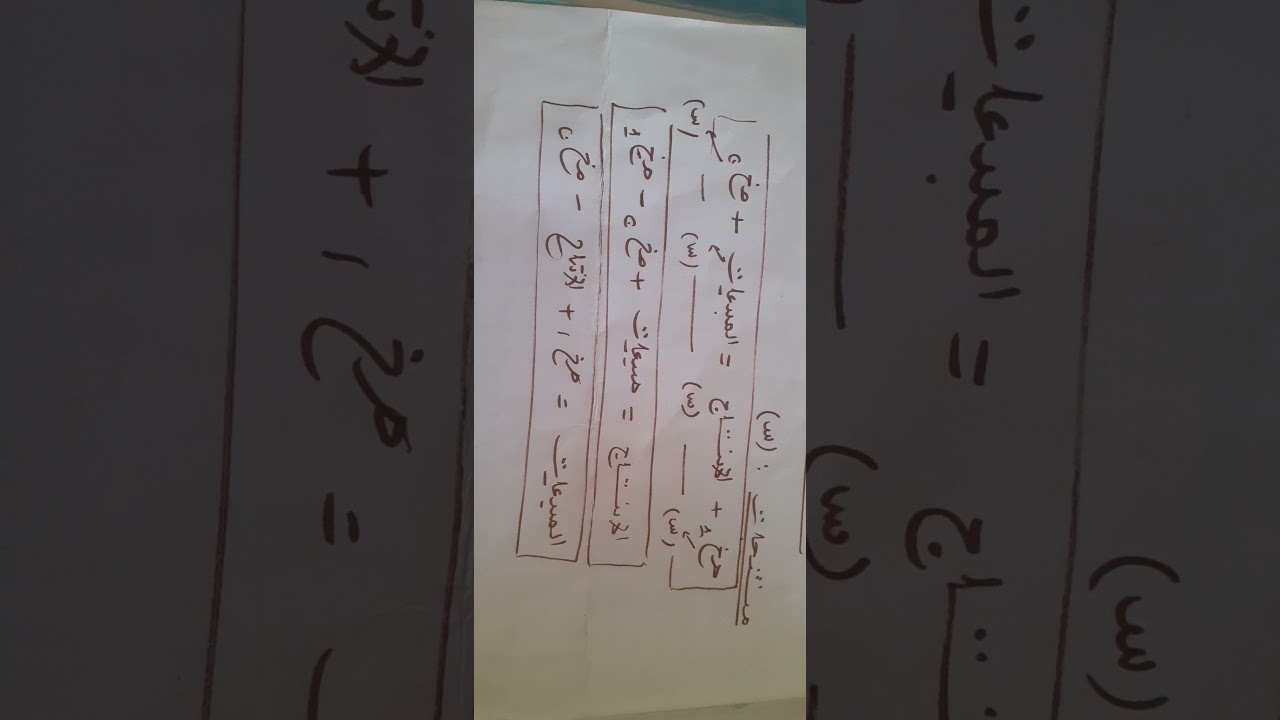 منتجات : (س)
مخ 1 + الإنتاج = المبيعات + مخ ٥
(س) (س) (س) (س)
الإنتاج = مبيعات + مخ ٥ - مخ 1
المبيعات = مخ 1 + الإنتاج - مخ ٥